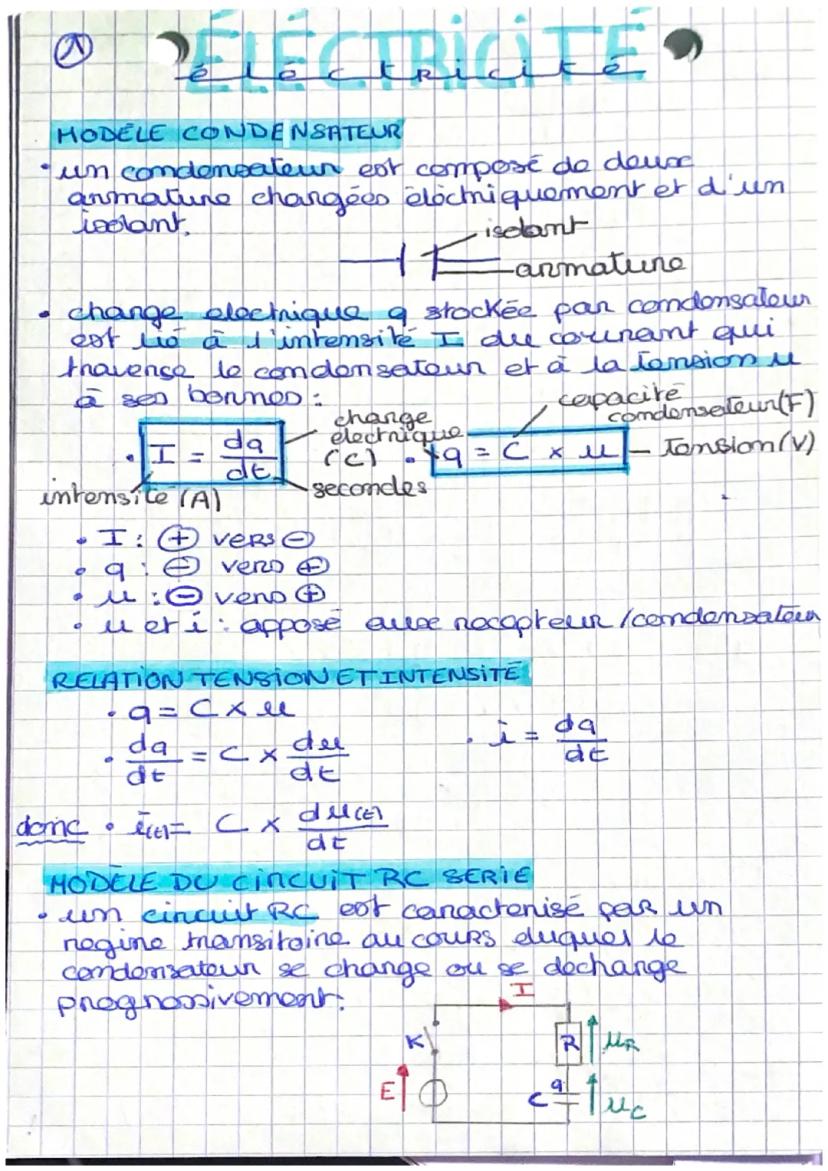 1
ÉLÉCTRICITÉ
électricité
MODÈLE CONDENSATEUR
• un condensateur est composé de deux
armature chargées éléctriquement et d'un
isolant.
isolant
armature
• charge electrique q stockée par condensateur
est lié à l'intensité I du courant qui
traverse le condensateur et à la tension u
à ses bornes :
• I = dq/dt
charge
électrique
(C)
secondes
intensité (A)
• q = C x u
capacité
condensateur (F)
Tension (V)
• I : ⊕ vers ⊖
• q : ⊖ vers ⊕
• u : ⊖ vers ⊕
• u et i : apposé aux recepteur / condensateur
RELATION TENSION ET INTENSITÉ
• q = C x u
• dq/dt = C x du/dt
• i = dq/dt
donc • i(t) = C x du(t)/dt
MODÈLE DU CIRCUIT RC SERIE
• un circuit RC est caracterisé par un
regime transitoire au cours duquel le
condensateur se charge ou se decharge
progressivement :
I
K
R
uR
E
C
q
uC